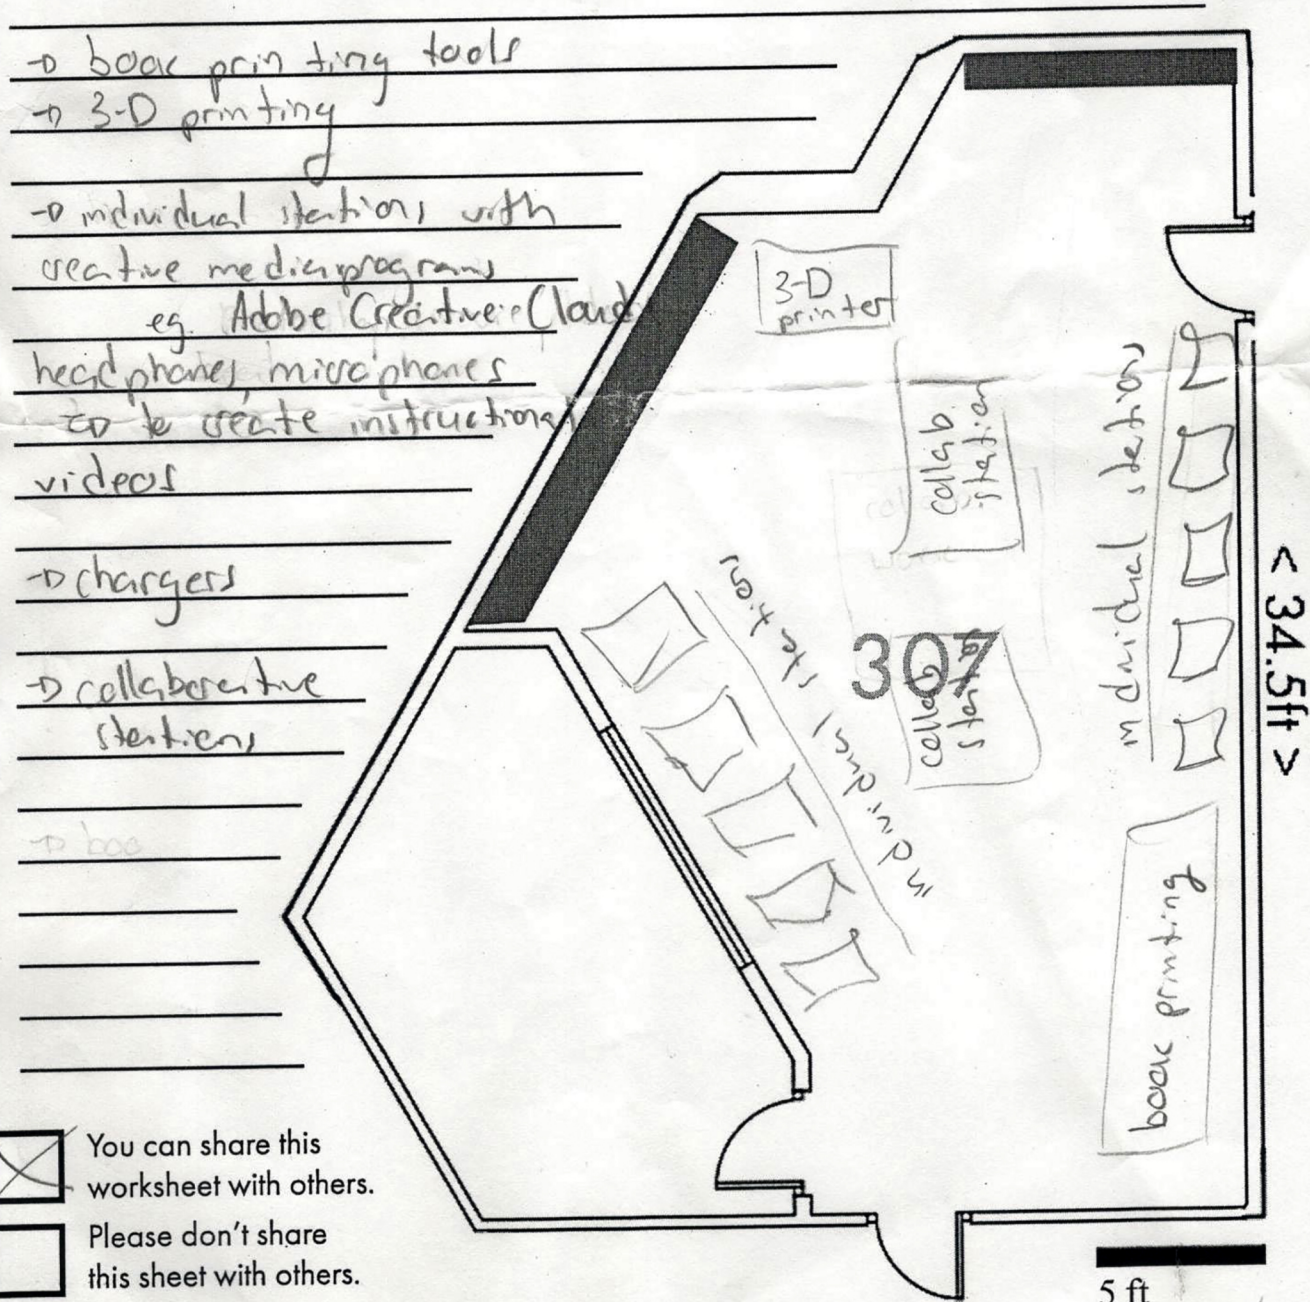 → book printing tools
→ 3-D printing
→ individual stations with
creative media programs
eg. Adobe Creative Cloud
headphones, microphones
→ to create instructional
videos
→ chargers
→ collaborative
stations
→ boo
You can share this
worksheet with others.
Please don't share
this sheet with others.
3-D
printer
collab
station
individual stations
individual stations
307
collab
station
collab
work
book printing
< 34.5ft >
5 ft